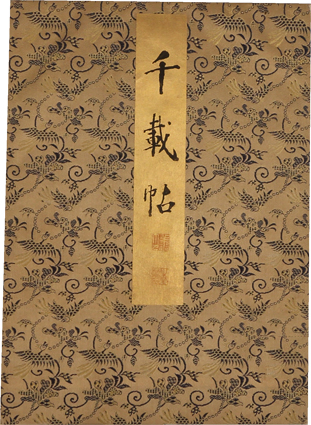 千載帖